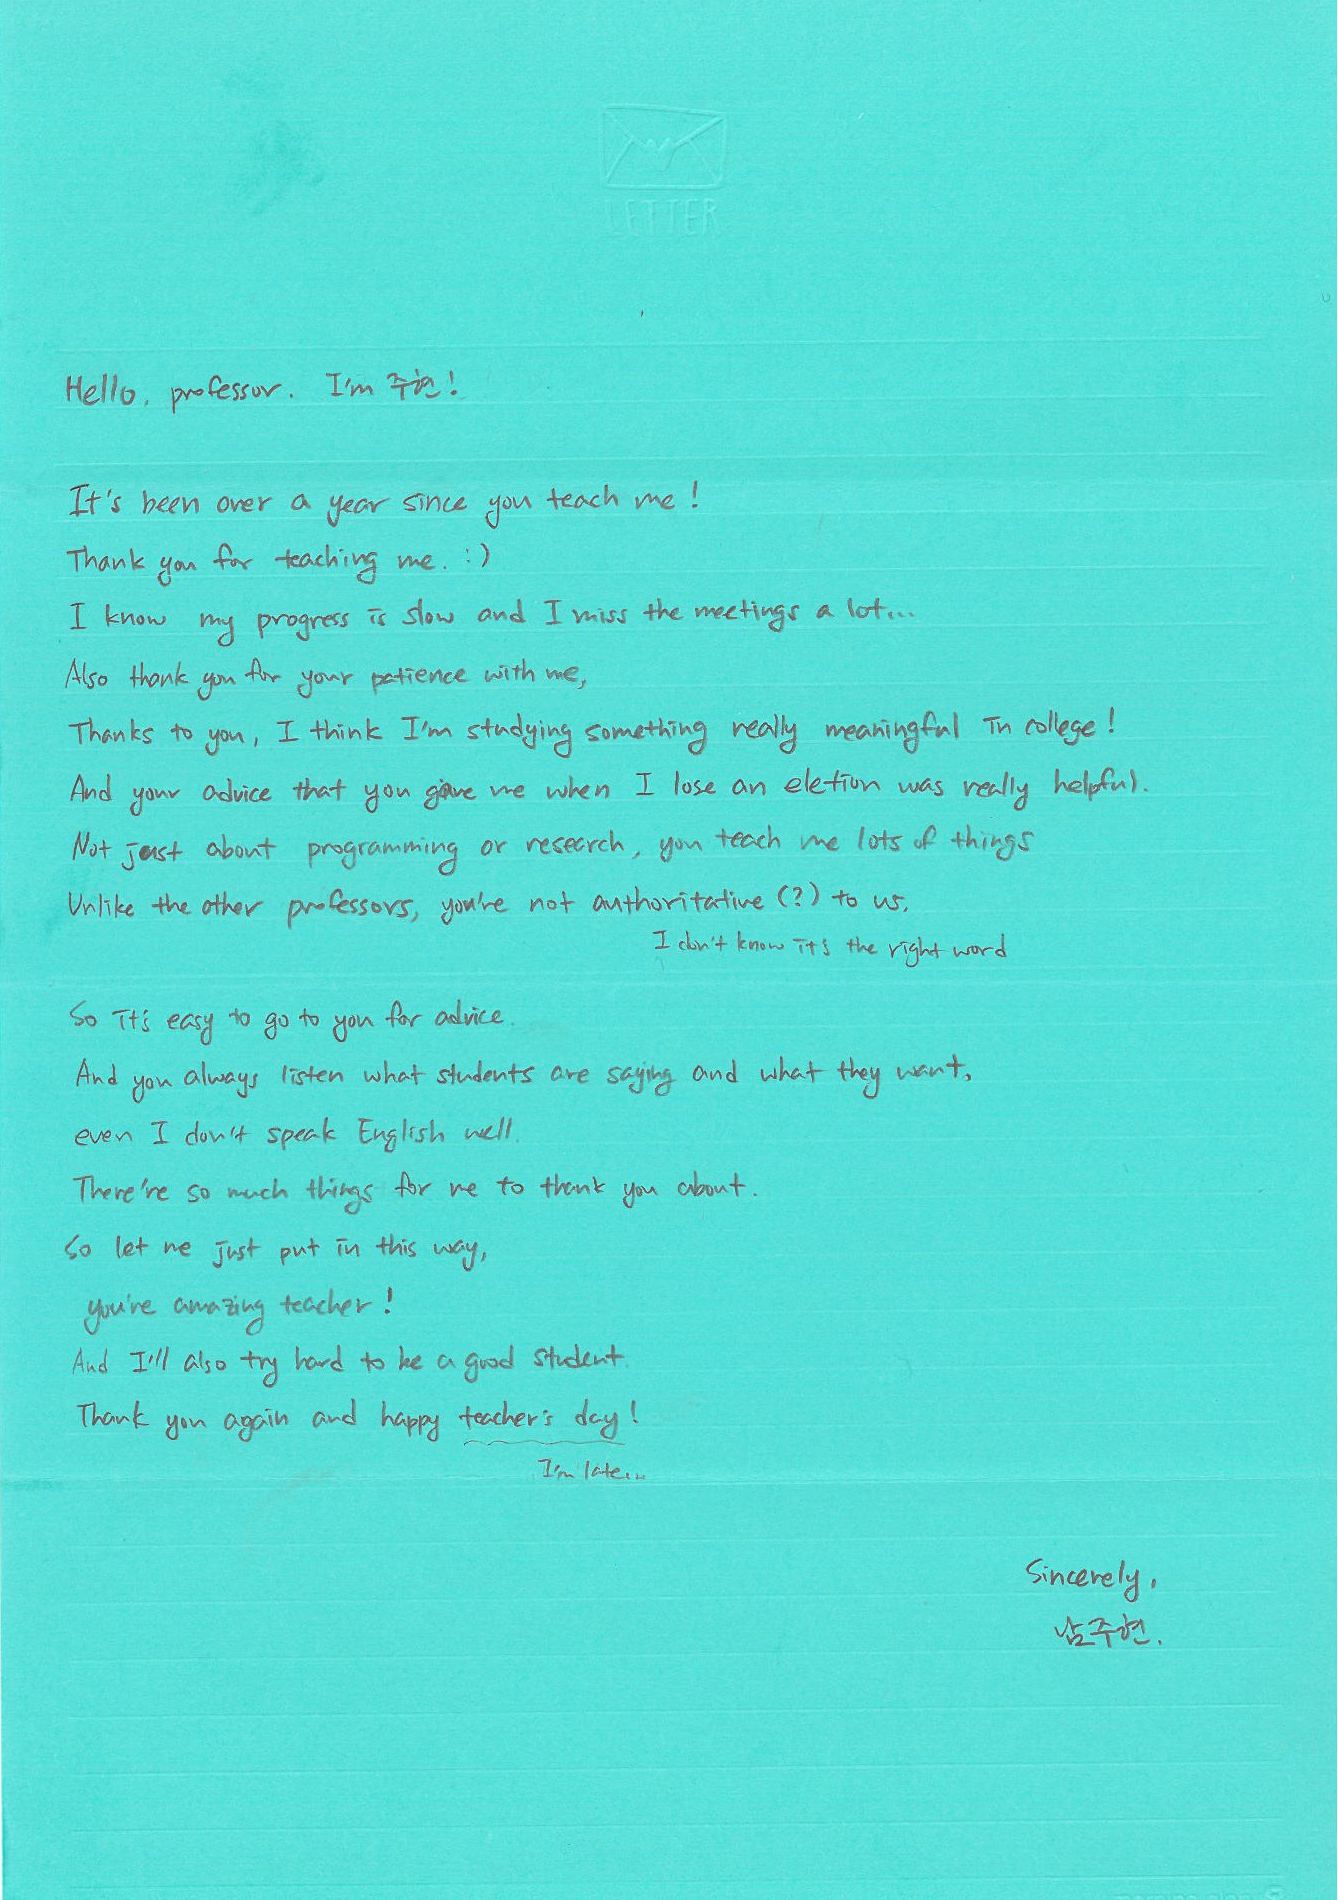 LETTER
Hello, professor. I'm 주현!
It's been over a year since you teach me!
Thank you for teaching me. :)
I know my progress is slow and I miss the meetings a lot...
Also thank you for your patience with me,
Thanks to you, I think I'm studying something really meaningful in college!
And your advice that you gave me when I lose an eletion was really helpful.
Not just about programming or research, you teach me lots of things
Unlike the other professors, you're not authoritative (?) to us.
I don't know it's the right word
So it's easy to go to you for advice.
And you always listen what students are saying and what they want,
even I don't speak English well.
There're so much things for me to thank you about.
So let me just put in this way,
you're amazing teacher!
And I'll also try hard to be a good student.
Thank you again and happy teacher's day!
I'm late...
Sincerely,
남주현.